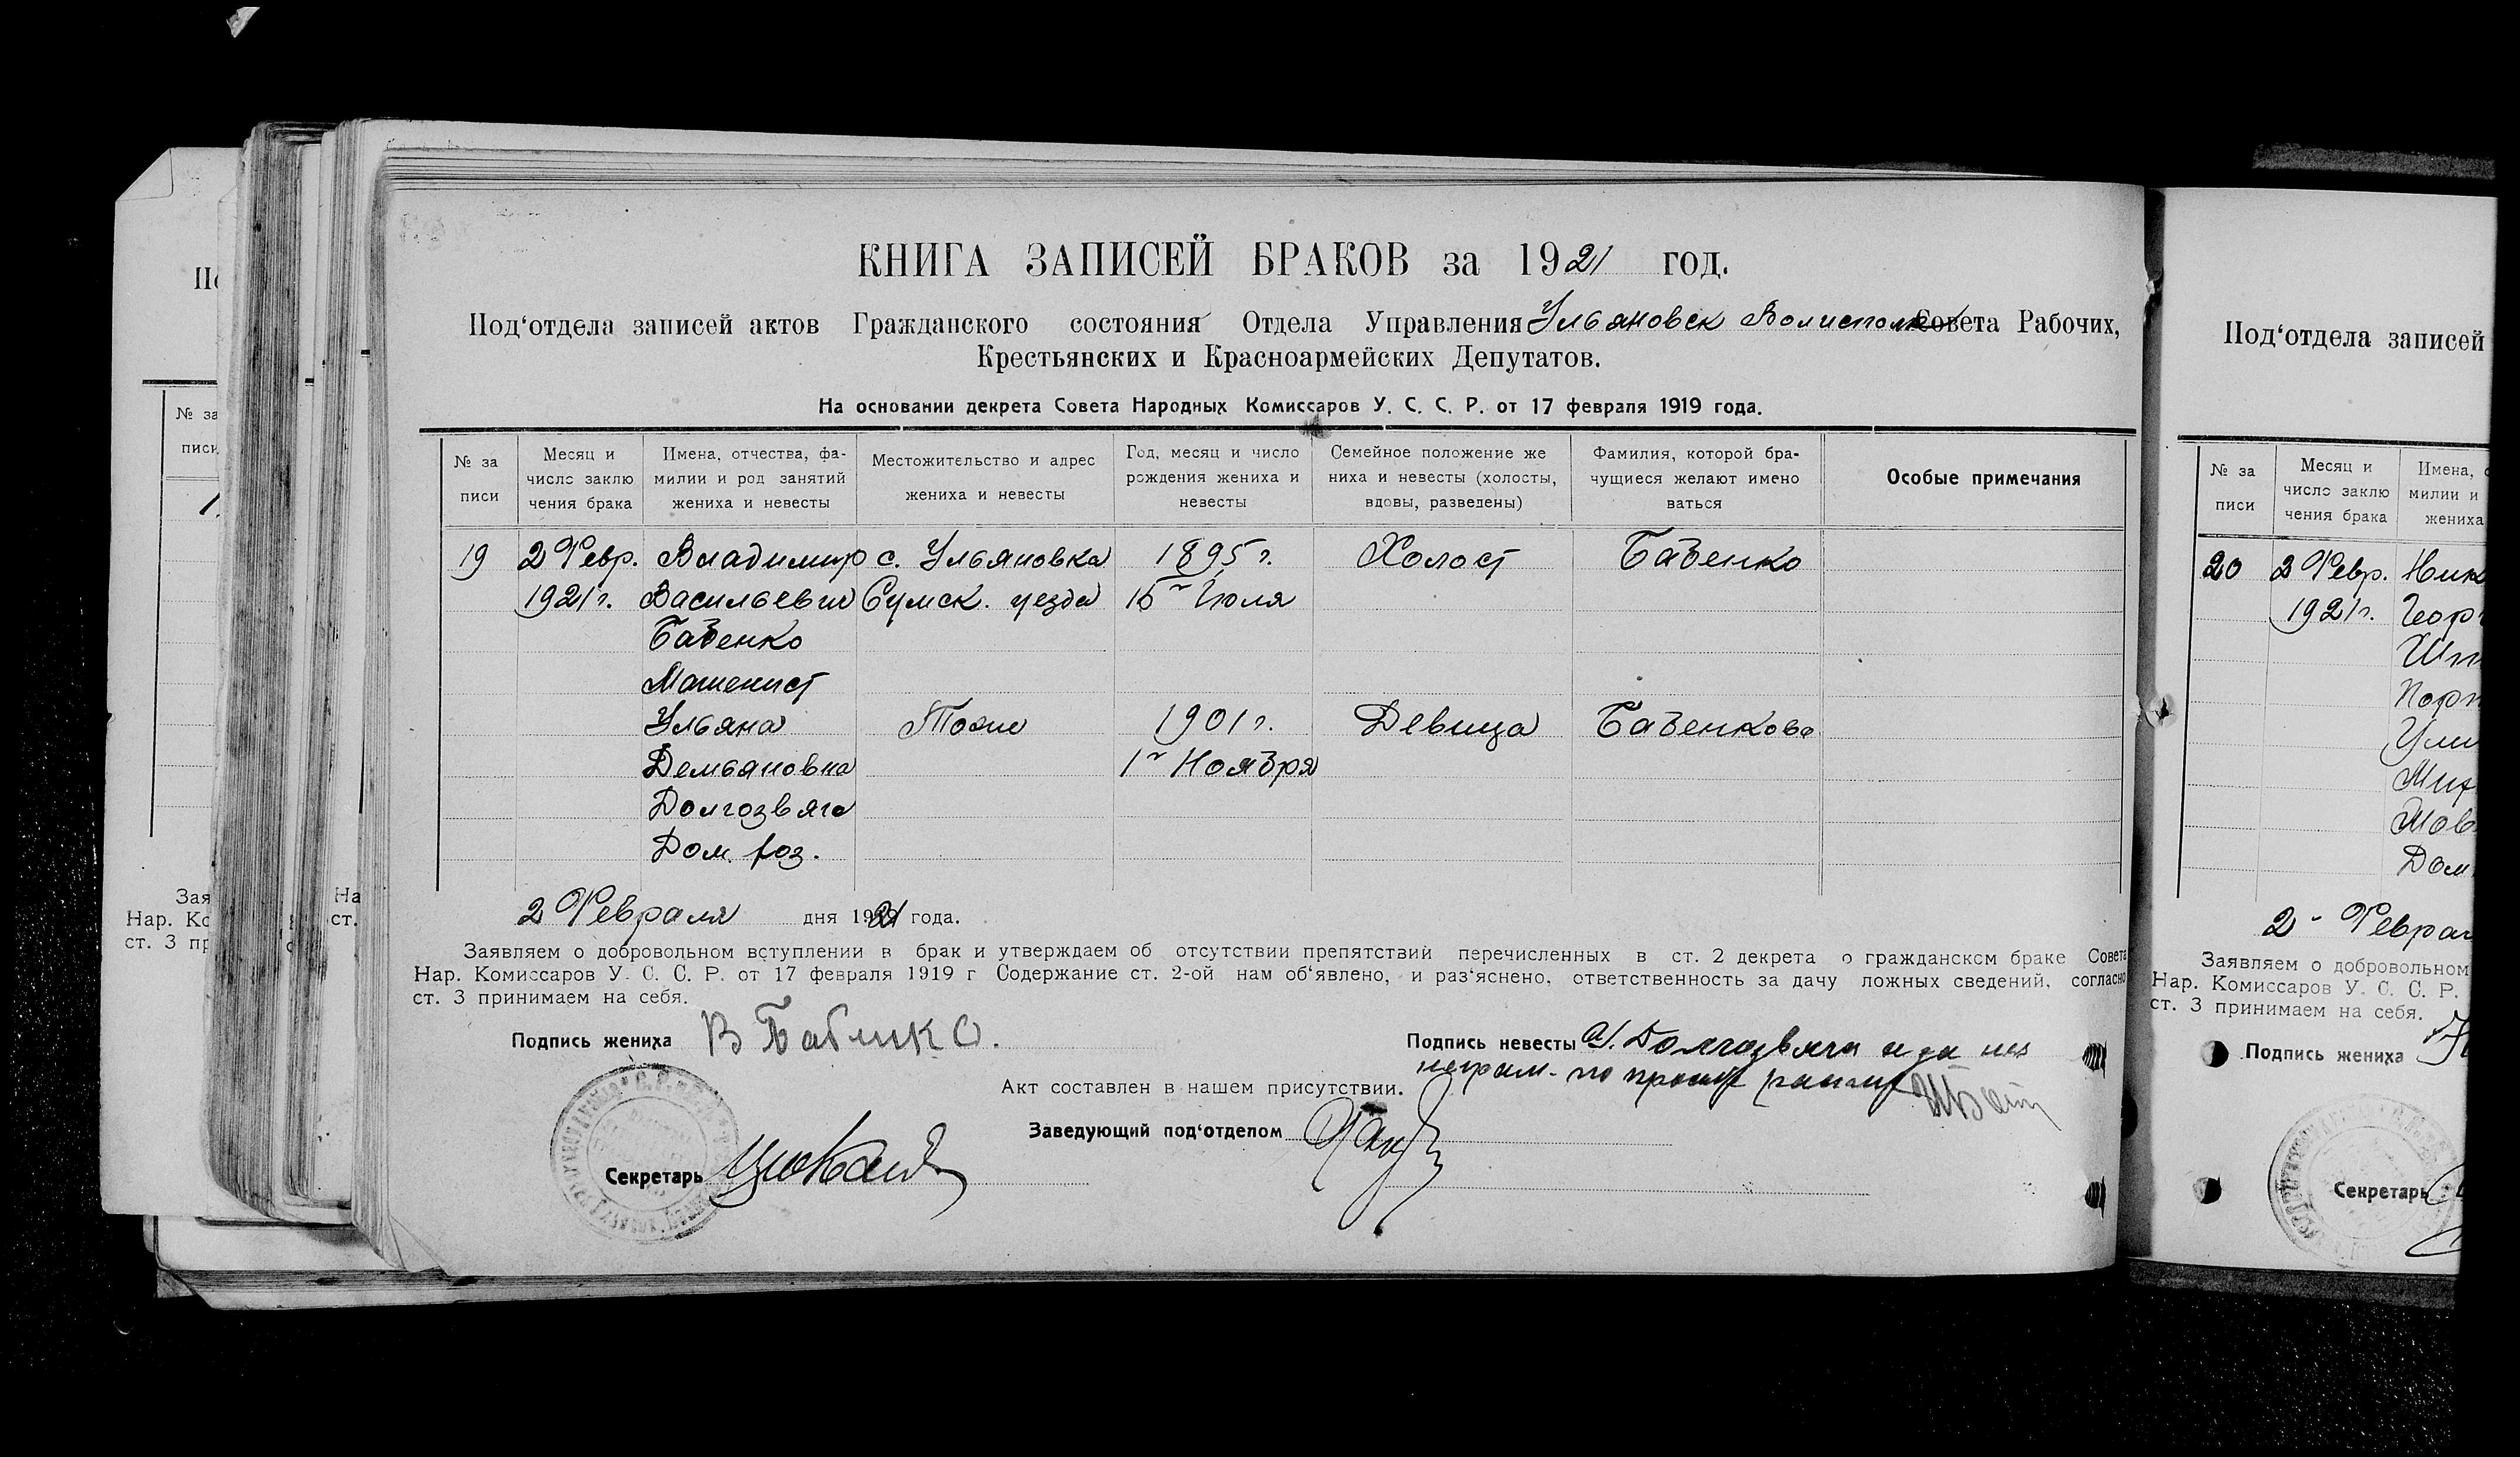 КНИГА ЗАПИСЕЙ БРАКОВ за 1921 год.
Под‘отдела записей актов Гражданского состояния Отдела Управления Ульяновск Волисполк Совета Рабочих,
Крестьянских и Красноармейских Депутатов.
На основании декрета Совета Народных Комиссаров У. С. С. Р. от 17 февраля 1919 года.
№ за
писи
Месяц и
число заклю
чения брака
Имена, отчества, фа-
милии и род занятий
жениха и невесты
Местожительство и адрес
жениха и невесты
Год, месяц и число
рождения жениха и
невесты
Семейное положение же
ниха и невесты (холосты,
вдовы, разведены)
Фамилия, которой бра-
чущиеся желают имено
ваться
Особые примечания
19 2 Февр. Владимир с. Ульяновка 1895 г. Холост Бабенко
1921 г. Васильевич Сумск. уезда 15 Июля
Бабенко
Машенист
Ульяна Тоже 1901 г. Девица Бабенкова
Демьяновна 1 Ноября
Долгозвяга
Дом. хоз.
2 Февраля дня 1921 года.
Заявляем о добровольном вступлении в брак и утверждаем об отсутствии препятствий перечисленных в ст. 2 декрета о гражданском браке Совета
Нар. Комиссаров У. С. С. Р. от 17 февраля 1919 г Содержание ст. 2-ой нам об‘явлено, и раз‘яснено, ответственность за дачу ложных сведений, согласно
ст. 3 принимаем на себя.
Подпись жениха В Бабенко.
Подпись невесты У. Долгозвяга а за нея
неграм. по просьбе
Акт составлен в нашем присутствии.
Заведующий под‘отделом
Секретарь
Под‘отдела записей
№ за
писи
Месяц и
число заклю
чения брака
Имена, о
милии и
жениха
20 2 Февр. Ник
1921 г. Геор
Дом
2 Феврал
Заявляем о добровольном
Нар. Комиссаров У. С. С. Р.
ст. 3 принимаем на себя.
Подпись жениха
Секретарь
№ за
писи
Зая
Нар. Ко
ст. 3 пр